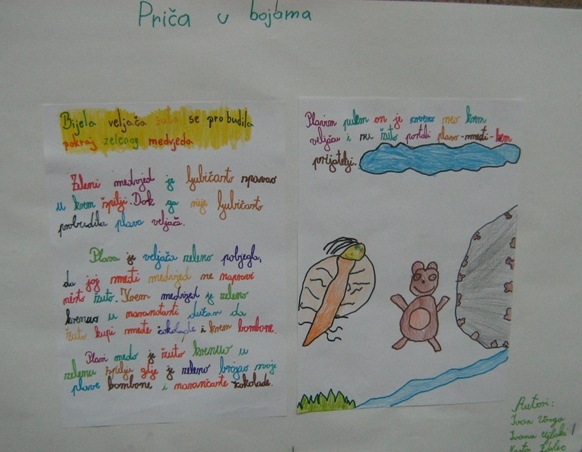 Priča u bojama
Bijela veljača žuto se probudila
pokraj zelenog medvjeda
Zeleni medvjed je ljubičasto spavao
u krem špilji. Dok ga nije ljubičasto
probudila plava veljača.
Plava je veljača zeleno pobjegla,
da joj smeđi medvjed ne napravi
nešto žuto. Krem medvjed je zeleno
krenuo u narančasti dućan da
žuto kupi smeđe čokolade i krem bombone.
Plavi medo je žuto krenuo u
zelenu špilju gdje je zeleno brojao svoje
plave bombone i narančaste čokolade.
Plavim putem on je crveno sreo krem
veljaču i su žuto postali plavo-smeđi-krem
prijatelji.
Autori:
Ivan
Ivana